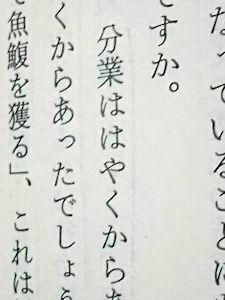 なっていること
ですか。
分業ははやくからあ
くからあったでしょう
魚鰒を獲る」、これは